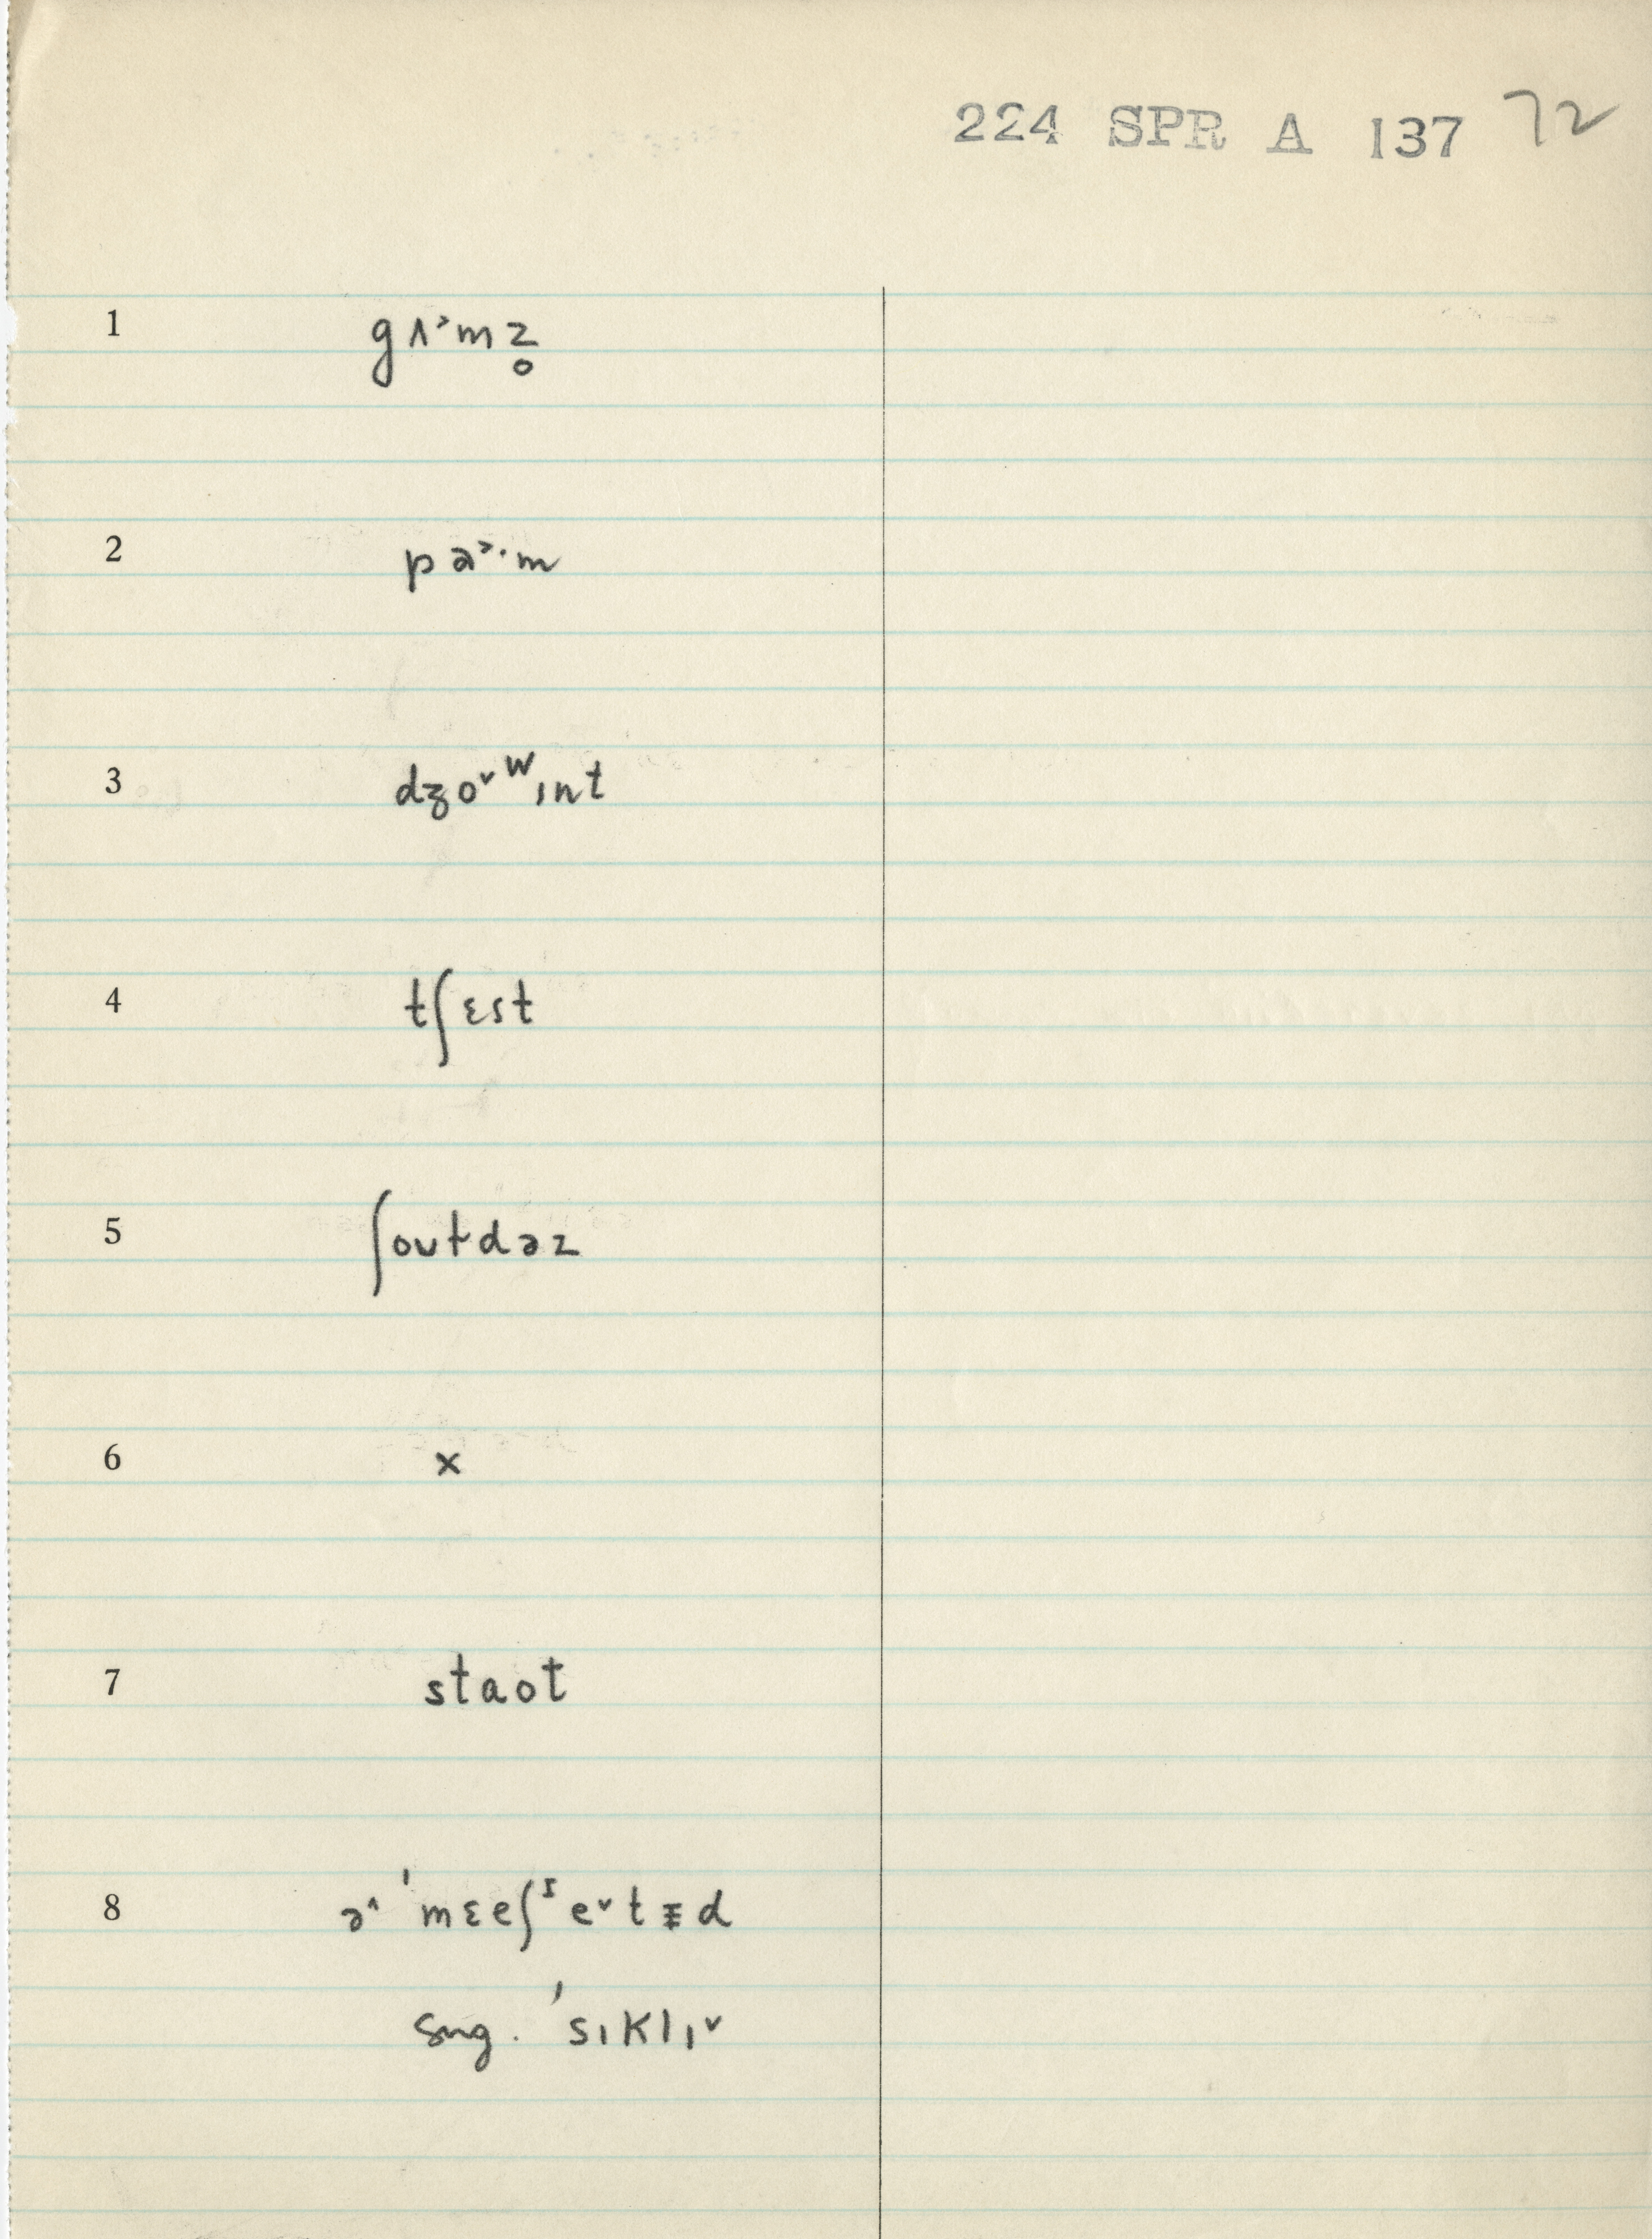 224 SPR A 137 72
1 gʌ˃mz̥
2 pa˃·m
3 dʒo˅ᵂɪnt
4 tʃɛst
5 ʃoʊɫdəz
6 x
7 staot
8 ə˄ ˈmɛeʃᶦe˅tᵻd
sug. ˈsɪklɪ˅